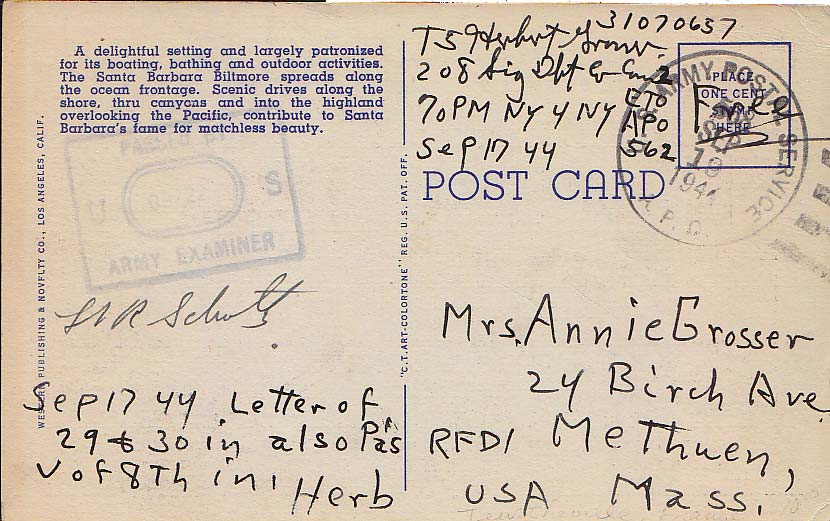 A delightful setting and largely patronized
for its boating, bathing and outdoor activities.
The Santa Barbara Biltmore spreads along
the ocean frontage. Scenic drives along the
shore, thru canyons and into the highland
overlooking the Pacific, contribute to Santa
Barbara's fame for matchless beauty.
WESTERN PUBLISHING & NOVELTY CO., LOS ANGELES, CALIF.
PASSED BY
U S
ARMY EXAMINER
Sep 17 44 Letter of
29 & 30 in also Pa's
V of 8Th in.
Herb
"C.T. ART-COLORTONE" REG. U.S. PAT. OFF.
31070657
T5 Herbert
208 Sig Dpt Co
70PM NY Y NY ETO APO
Sep 17 44 562
Free
PLACE
ONE CENT
STAMP
HERE
ARMY POSTAL SERVICE
SEP
1944
A. P. O.
POST CARD
Mrs. Annie Grosser
24 Birch Ave
RFD1 Methuen,
USA Mass.